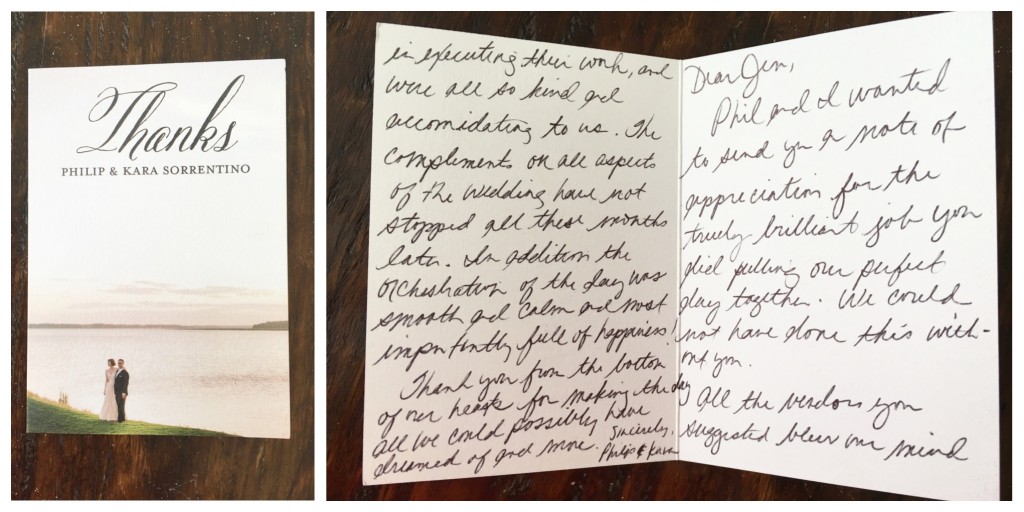 Thanks
PHILIP & KARA SORRENTINO
Dear Jen,
Phil and I wanted
to send you a note of
appreciation for the
truely brilliant job you
did pulling our perfect
day together. We could
not have done this with-
out you.
All the vendors you
suggested blew our mind
in executing their work, and
were all so kind and
accomidating to us. The
compliments on all aspects
of the wedding have not
stopped all these months
later. In addition the
orchestration of the day was
smooth and calm and most
importantly full of happiness!
Thank you from the bottom
of our hearts for making the day
all we could possibly have
dreamed of and more. Sincerely,
Philip & Kara